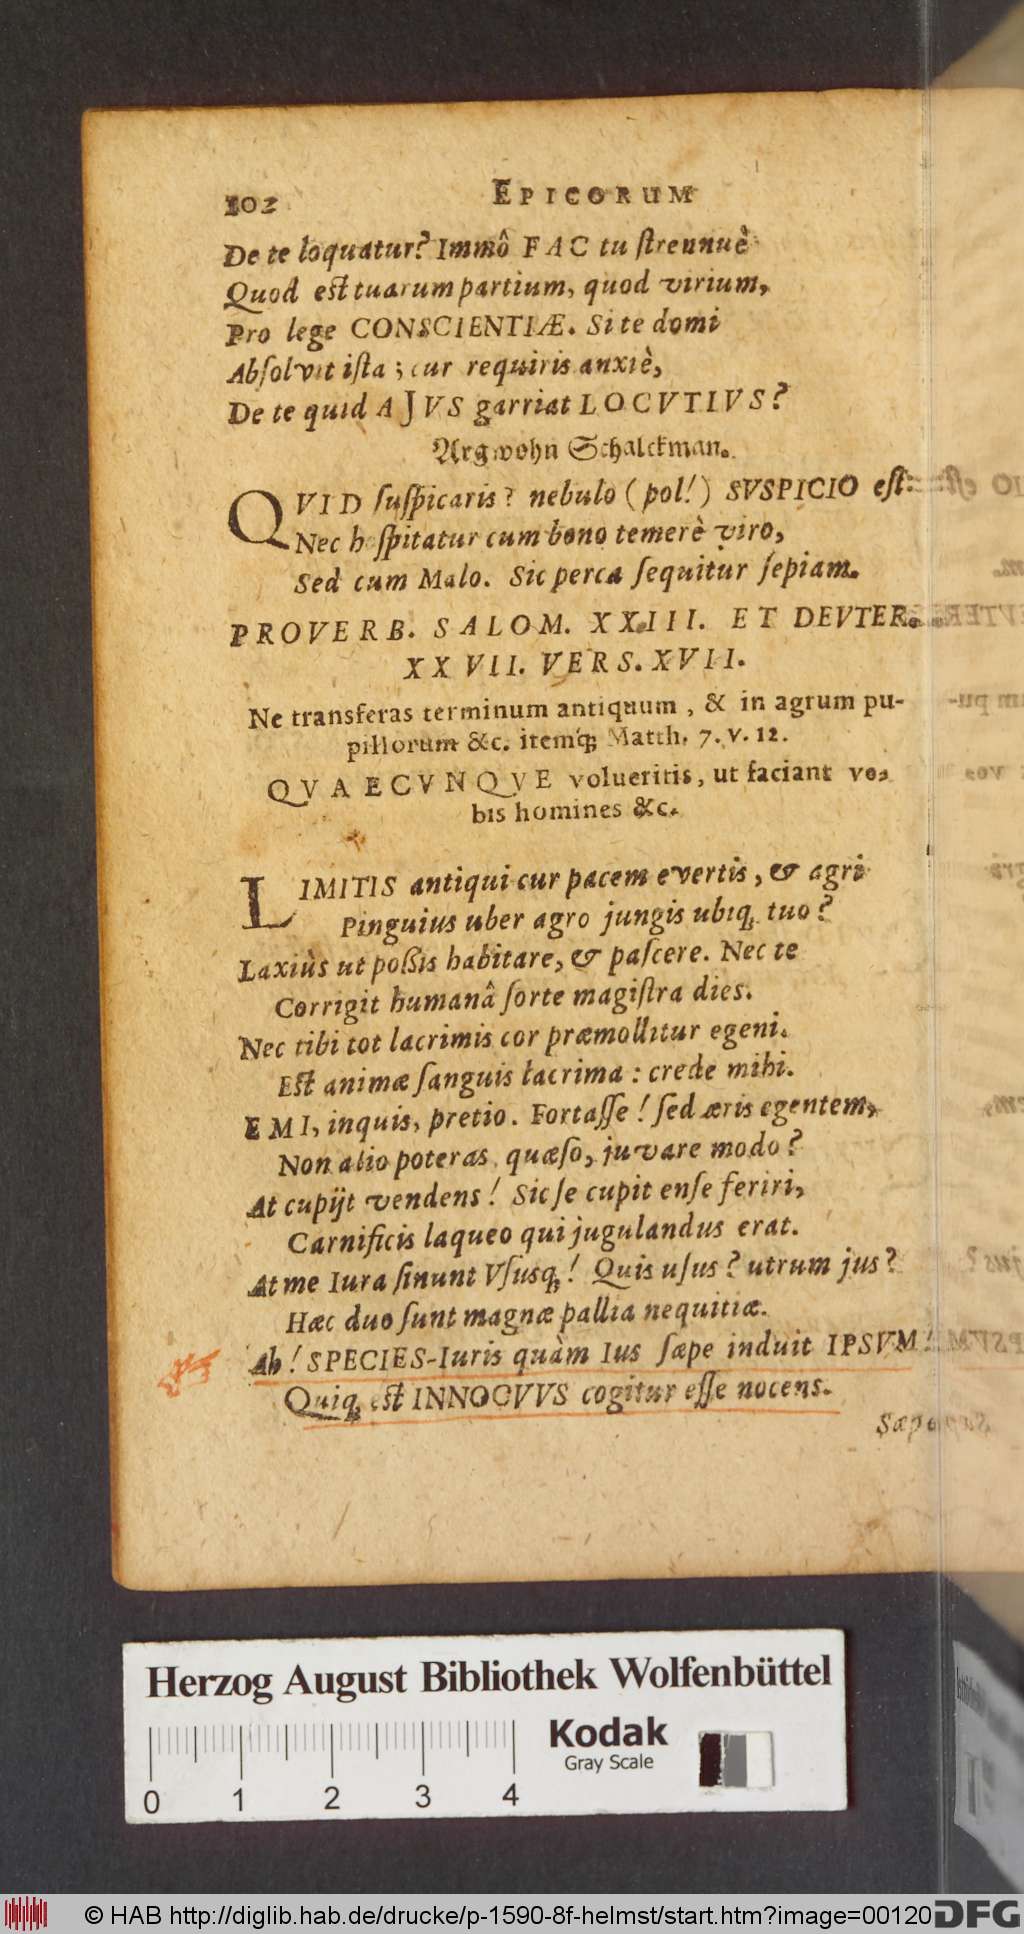 102 EPICORUM
De te loquatur? Immô FAC tu ſtrennuè
Quod est tuarum partium, quod virium,
Pro lege CONSCIENTIÆ. Si te domi
Abſolvit iſta; cur requiris anxiè,
De te quid AJVS garriat LOCVTIVS?
Argwohn Schalckman.
QVID ſuſpicaris? nebulo (pol!) SVSPICIO eſt:
Nec hoſpitatur cum bono temerè viro,
Sed cum Malo. Sic perca ſequitur ſepiam.
PROVERB. SALOM. XXIII. ET DEVTER.
XXVII. VERS. XVII.
Ne transferas terminum antiquum, & in agrum pu-
pillorum &c. itemq; Matth. 7. v. 12.
QVAECVNQVE volueritis, ut faciant vo-
bis homines &c.
LIMITIS antiqui cur pacem evertis, & agri
Pinguius uber agro jungis ubiq; tuo?
Laxiùs ut poßis habitare, & paſcere. Nec te
Corrigit humanâ ſorte magiſtra dies.
Nec tibi tot lacrimis cor præmollitur egeni.
Est animæ ſanguis lacrima: crede mihi.
EMI, inquis, pretio. Fortaſſe! ſed æris egentem,
Non alio poteras, quæſo, juvare modo?
At cupijt vendens! Sic ſe cupit enſe feriri,
Carnificis laqueo qui jugulandus erat.
At me Iura ſinunt Vſusq;! Quis uſus? utrum jus?
Hæc duo ſunt magnæ pallia nequitiæ.
Ah! SPECIES-Iuris quàm Ius ſæpe induit IPSVM!
Quiq; est INNOCVVS cogitur eſſe nocens.
Sæpe
Herzog August Bibliothek Wolfenbüttel
Kodak
Gray Scale
0 1 2 3 4
© HAB http://diglib.hab.de/drucke/p-1590-8f-helmst/start.htm?image=00120
DFG